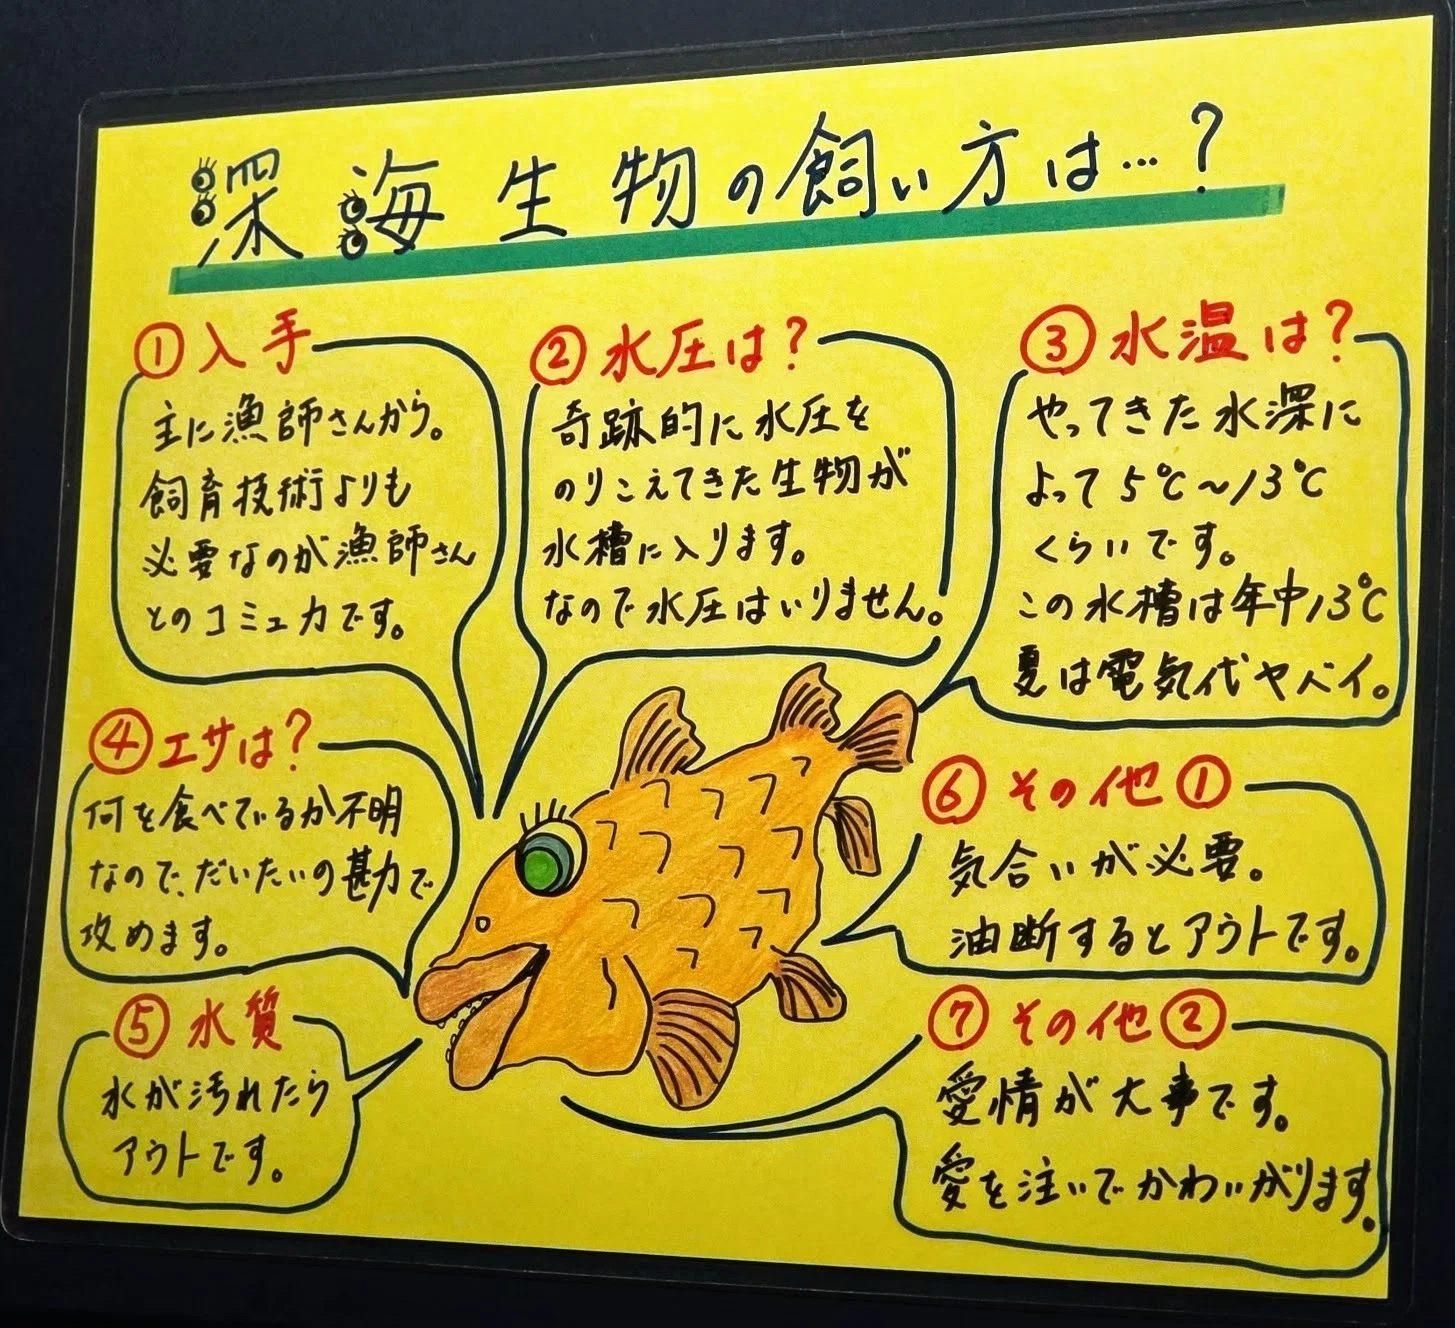 深海生物の飼い方は…?
①入手
主に漁師さんから。
飼育技術よりも
必要なのが漁師さん
とのコミュ力です。
②水圧は?
奇跡的に水圧を
のりこえてきた生物が
水槽に入ります。
なので水圧はいりません。
③水温は?
やってきた水深に
よって5℃~13℃
くらいです。
この水槽は年中13℃
夏は電気代ヤバイ。
④エサは?
何を食べているか不明
なので、だいたいの勘で
攻めます。
⑤水質
水が汚れたら
アウトです。
⑥その他①
気合いが必要。
油断するとアウトです。
⑦その他②
愛情が大事です。
愛を注いでかわいがります。